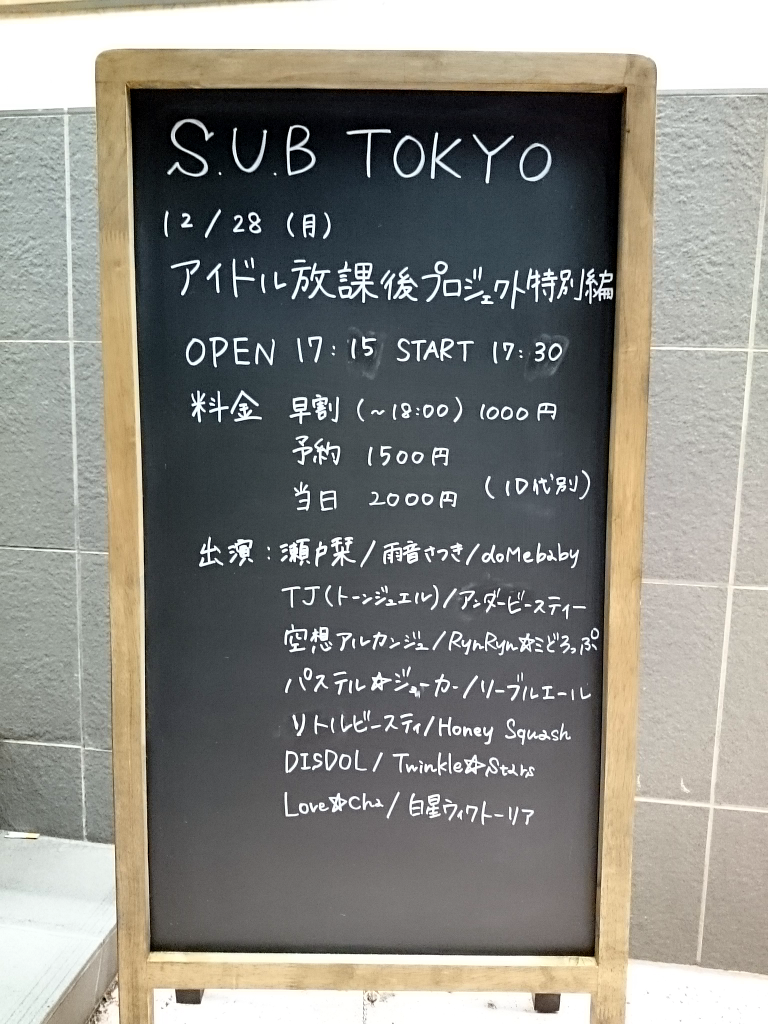 S.U.B TOKYO
12/28 (月)
アイドル放課後プロジェクト特別編
OPEN 17:15 START 17:30
料金 早割 (~18:00) 1000円
予約 1500円
当日 2000円 (1D代別)
出演:瀬戸栞/雨音さつき/doMebaby
TJ(トーンジュエル)/アンダービースティー
空想アルカンジュ/RynRyn☆ミどろっぷ
パステル☆ジョーカー/リーブルエール
リトルビースティ/Honey Squash
DISDOL/Twinkle☆Stars
Love☆Cha/白星ヴィクトーリア